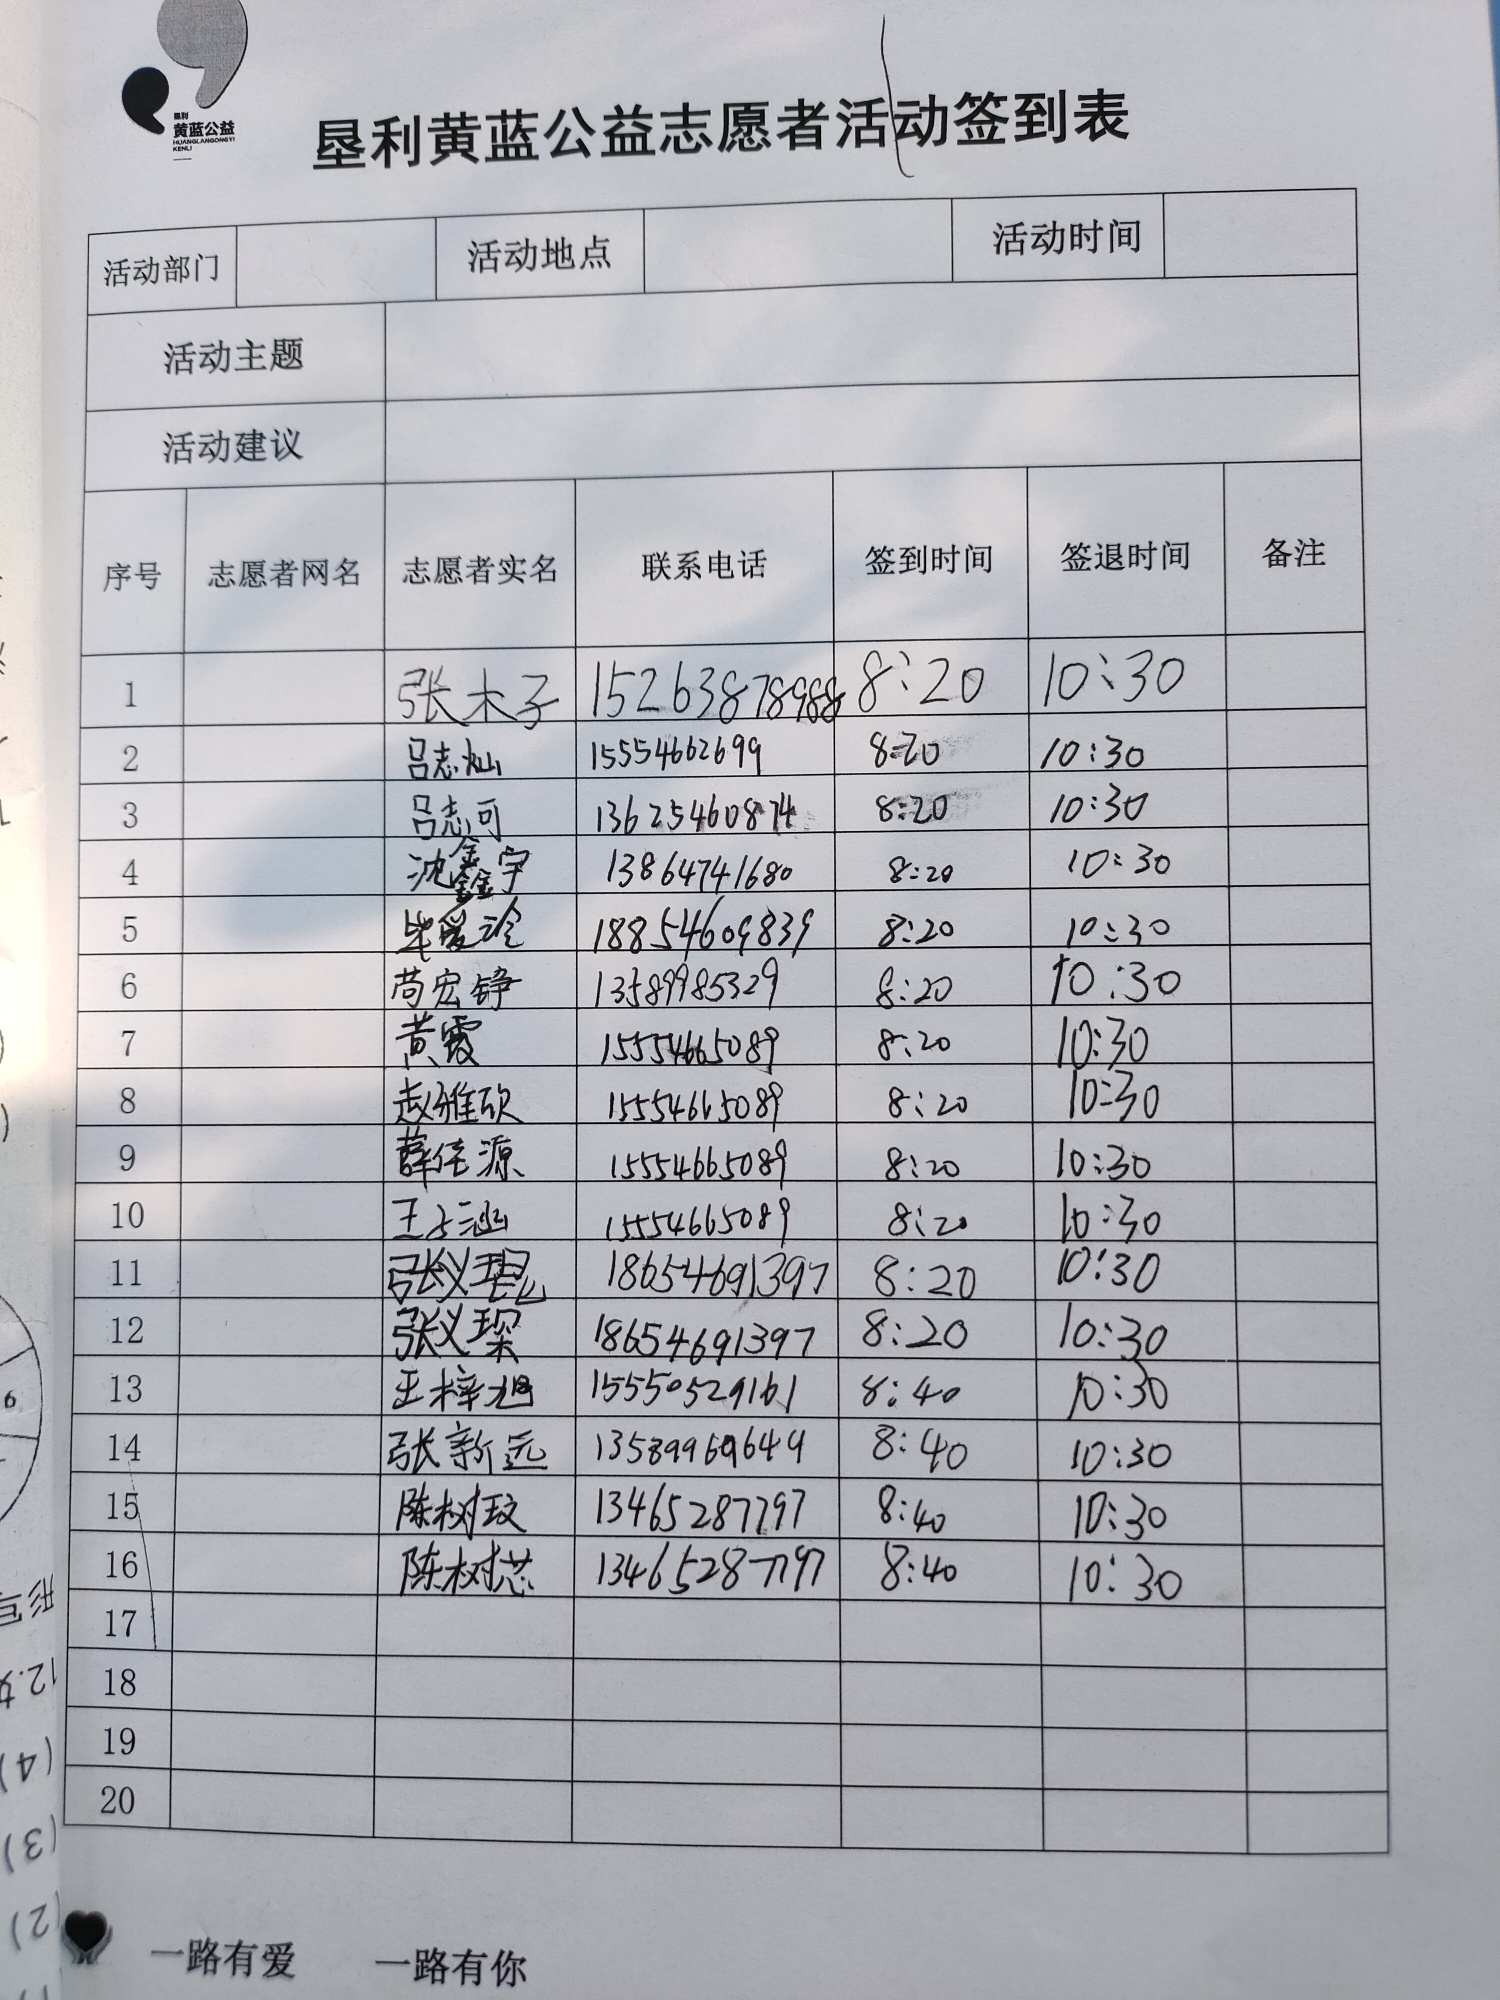 垦利
黄蓝公益
HUANGLANGONGYI
KENLI
垦利黄蓝公益志愿者活动签到表
活动部门 活动地点 活动时间
活动主题
活动建议
序号 志愿者网名 志愿者实名 联系电话 签到时间 签退时间 备注
1 张木子 15263878988 8:20 10:30
2 吕志灿 15554662699 8:20 10:30
3 吕志可 13625460874 8:20 10:30
4 沈鑫宇 13864741680 8:20 10:30
5 毕爱泠 18854609839 8:20 10:30
6 苘宏铮 13589985329 8:20 10:30
7 黄霞 15554665089 8:20 10:30
8 赵雅欣 15554665089 8:20 10:30
9 薛佳源 15554665089 8:20 10:30
10 王子涵 15554665089 8:20 10:30
11 张义琨 18654691397 8:20 10:30
12 张义琛 18654691397 8:20 10:30
13 王梓旭 15550529161 8:40 10:30
14 张新远 13589969649 8:40 10:30
15 陈树玟 13465287797 8:40 10:30
16 陈树芯 13465287797 8:40 10:30
17
18
19
20
一路有爱 一路有你